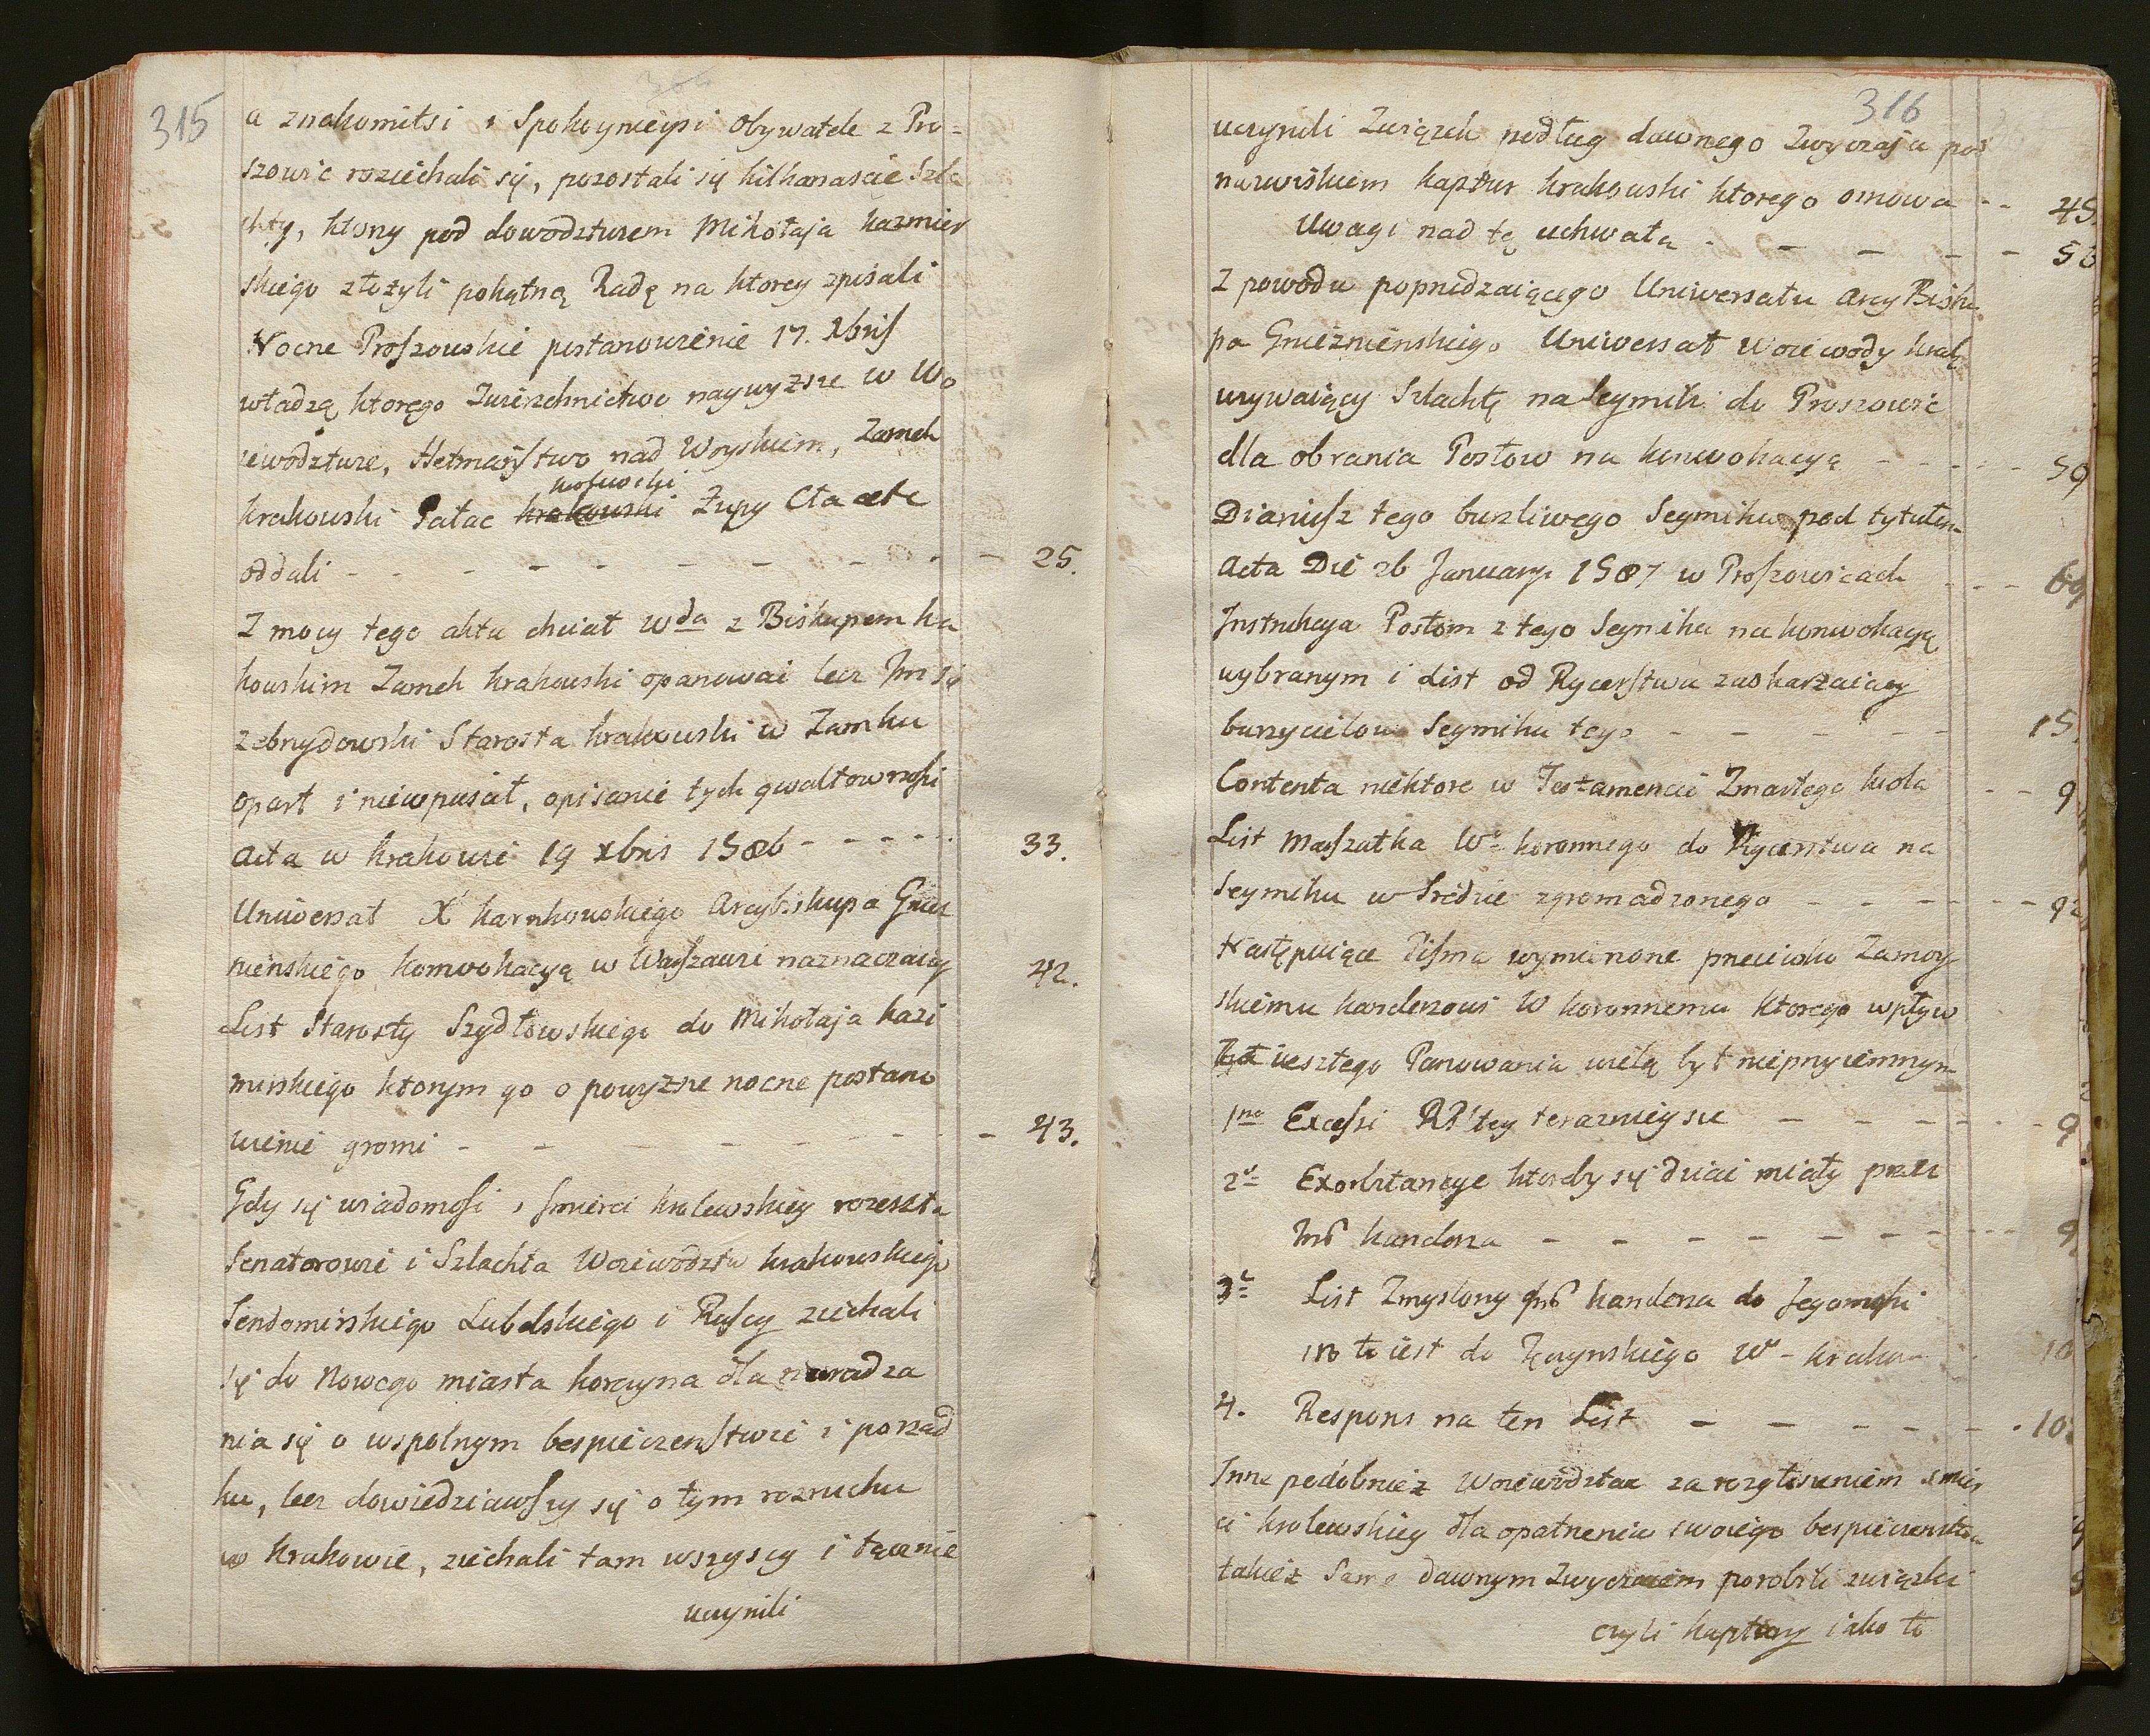 315
a znakomitsi i Spokoynieysi Obywatele z Pro=
szowic roziechali się, pozostali się kilkanascie Szla
chty, ktorzy pod dowodztwem Mikołaja Kazmier
skiego złożyli pokątną Radę na ktorey zpisali
Nocne Proszowskie postanowienie 17. Xbris
władzą ktorego Zwierzchnictwo naywyzsze w Wo
iewodztwie, Hetmaństwo nad Woyskiem, Zamek
krakowski Pałac krakowski Żupy Cła etc
oddali - - - - - - - - - - 25.
Z mocy tego aktu chciał Wda z Biskupem kra
kowskim Zamek krakowski opanować lecz
zebrzydowski Starosta krakowski w Zamku
oparł i niewpuścił, opisanie tych gwałtownosci
Acta w krakowie 19 xbris 1586 - - - - - 33.
Uniwersał X Karnkowskiego Arcybiskupa Gniez
nieńskiego konwokacyą w Warszawie naznaczaiący 42.
List Starosty Szydłowskiego do Mikołaja Kazi
mirskiego ktorym go o powyzsze nocne postano
wienie gromi - - - - - - - - 43.
Gdy się wiadomosć o smierci krolewskiey rozeszła
Senatorowie i Szlachta Woiewodztw krakowskiego
Sendomirskiego Lubelskiego i Ruscy ziechali
się do Nowego miasta Korczyna dla naradza
nia się o wspolnym bespieczeństwie i porząd
ku, lecz dowiedziawszy się o tym rozruchu
w Krakowie, ziechali tam wszyscy i łącznie
uczynili
316
uczynili Związek podług dawnego Zwyczaju pod
nazwiskiem kaptur krakowski ktorego osnowa - - 45.
Uwagi nad tą uchwałą - - - - - 5
Z powodu poprzedzaiącego Uniwersału Arcy Bisku
pa Gnieźnieńskiego Uniwersał Woiewody krak
wzywaiący Szlachtę na Seymik do Proszowic
dla obrania Posłow na konwokacyą - - - - - 59
Diariusz tego burzliwego Seymiku pod tytułem
Acta Die 26 January 1587 w Proszowicach - - - 69
Instrukcya Posłom z tego Seymiku na konwokacyą
wybranym i list od Rycerstwa zaskarżaiący
burzycielow Seymiku tego - - - - -
Contenta niektore w Testamencie Zmarłego krola - - 9
List Marszałka Wo koronnego do Rycerstwa na
Seymiku w Sredzie zgromadzonego - - - - - - 9
Następuiące Pisma wymierzone przeciwko Zamoy
skiemu kanclerzowi W koronnemu ktorego wpływ
zeszłego Panowania wielą był nieprzyiemnym
1mo Excessi RP'tey terazniejsze - - - - - - 9
2o Exorbitancye ktordy się dziać miały przez
Jmc kanclerza - - - - - - - - - - 9
3o List Zmyslony Jmc kanclerza do Jegomosci
to iest do Tęczynskiego Wo krakow 10
4. Respons na ten List - - - - - - 10
Inne podobnież Woiewodztwa za rozgłoszeniem smier
ci krolewskiey dla opatrzenia swoiego bespieczenstwa
takież same dawnym Zwyczaiem porobili związki
czyli kaptury iako to